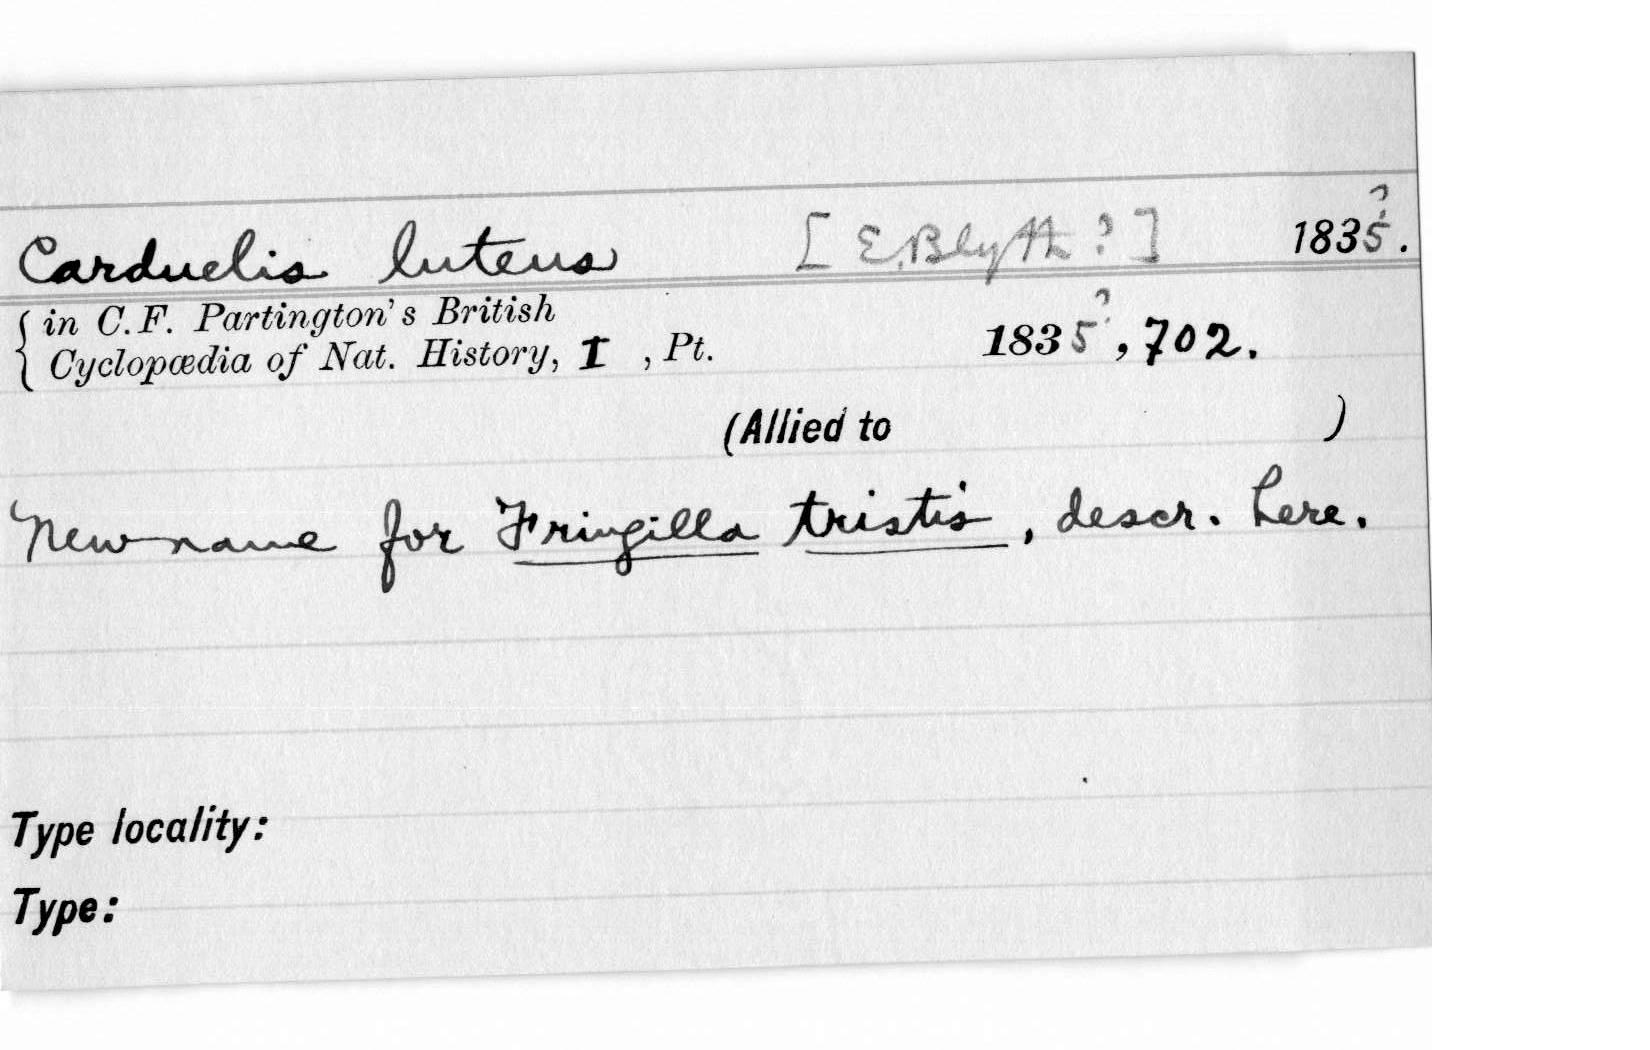 Carduelis luteus [E. Blyth?] 1835?.
in C.F. Partington's British
Cyclopædia of Nat. History, I , Pt. 1835?, 702.
(Allied to )
New name for Fringilla tristis, descr. here.
Type locality:
Type: